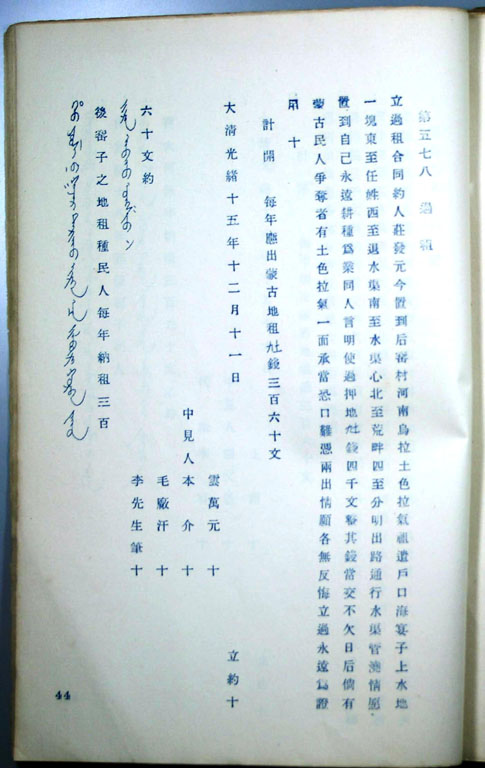 第五七八　過租
立過租合同約人莊發元今置到后窑村河南烏拉土色拉氣祖遺戶口海宴子上水地
一塊東至任姓西至退水渠南至水渠心北至荒畔四至分明出路通行水渠管澆情愿
置到自己永遠耕種爲業同人言明使過押地錢四千文整其錢當交不欠日后倘有
蒙古民人爭奪者有土色拉氣一面承當恐口難憑兩出情願各無反悔立過永遠爲證
用　十
計開　每年應出蒙古地租錢三百六十文
大清光緒十五年十二月十一日　立約十
雲萬元　十
中見人本　介　十
毛廠汗　十
李先生筆十
六十文約
後窑子之地租種民人每年納租三百
44